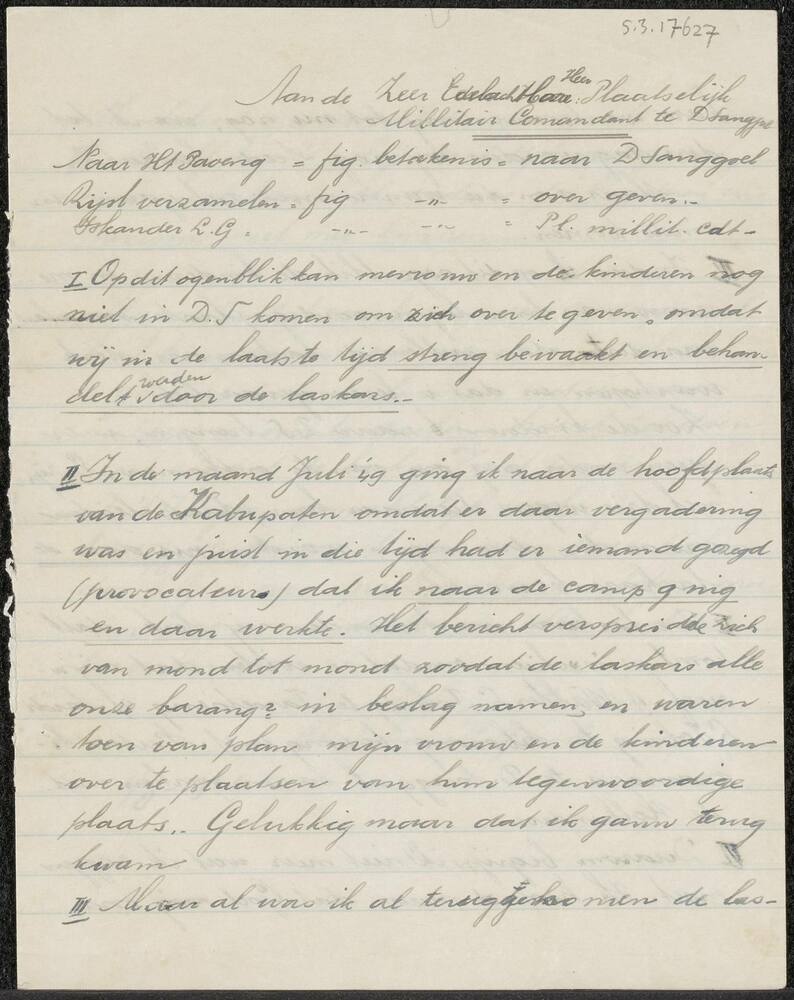 5.3.17627
Aan de Zeer Edelachtbare Heer Plaatselijk
Millitair Comandant te D Sanggoel
Naar Ht Paveng = fig. betekenis = naar D Sanggoel
Rijst verzamelen = fig -"- = over geven.-
Iskander L.G = -"- -"- = Pl. millit. cdt -
I Op dit ogenblik kan mevrouw en de kinderen nog
niet in D.S komen om zich over te geven, omdat
wij in de laatste tijd streng bewaakt en behan-
delt werden door de laskars.-
II In de maand Juli '49 ging ik naar de hoofdplaats
van de Kabupaten omdat er daar vergadering
was en juist in die tijd had er iemand gezegd
(provocateurs) dat ik naar de camp g nig
en daar werkte. Het bericht verspreidde zich
van mond tot mond zovdat de laskars alle
onze barang2 in beslag namen en waren
toen van plan mijn vrouw en de kinderen
over te plaatsen van hun tegenwoordige
plaats.. Gelukkig maar dat ik gauw terug
kwam
III Maar al was ik al teruggekomen de las-